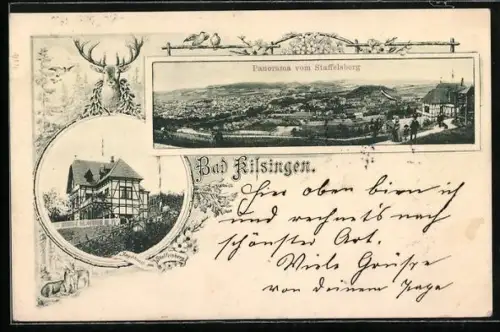 Panorama vom Staffelsberg
Bad Kilsingen.
Hier oben bin ich
und rechnet's nach
schönster Art.
Viele Grüsse
von Deinem Papa